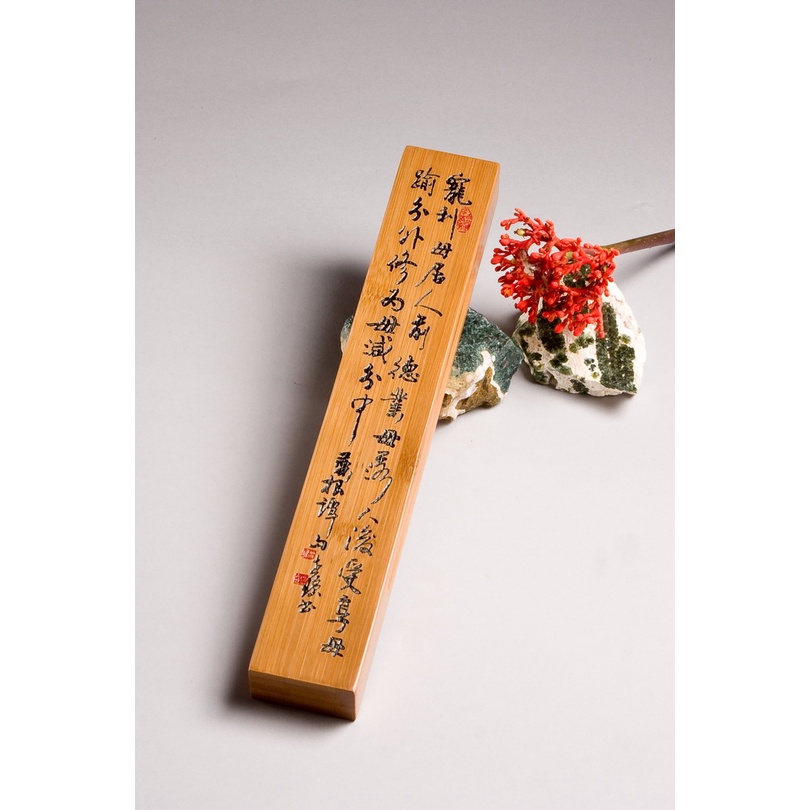 寵利毋居人前德業毋落人後受享毋
踰分外修為毋減分中
菜根譚句